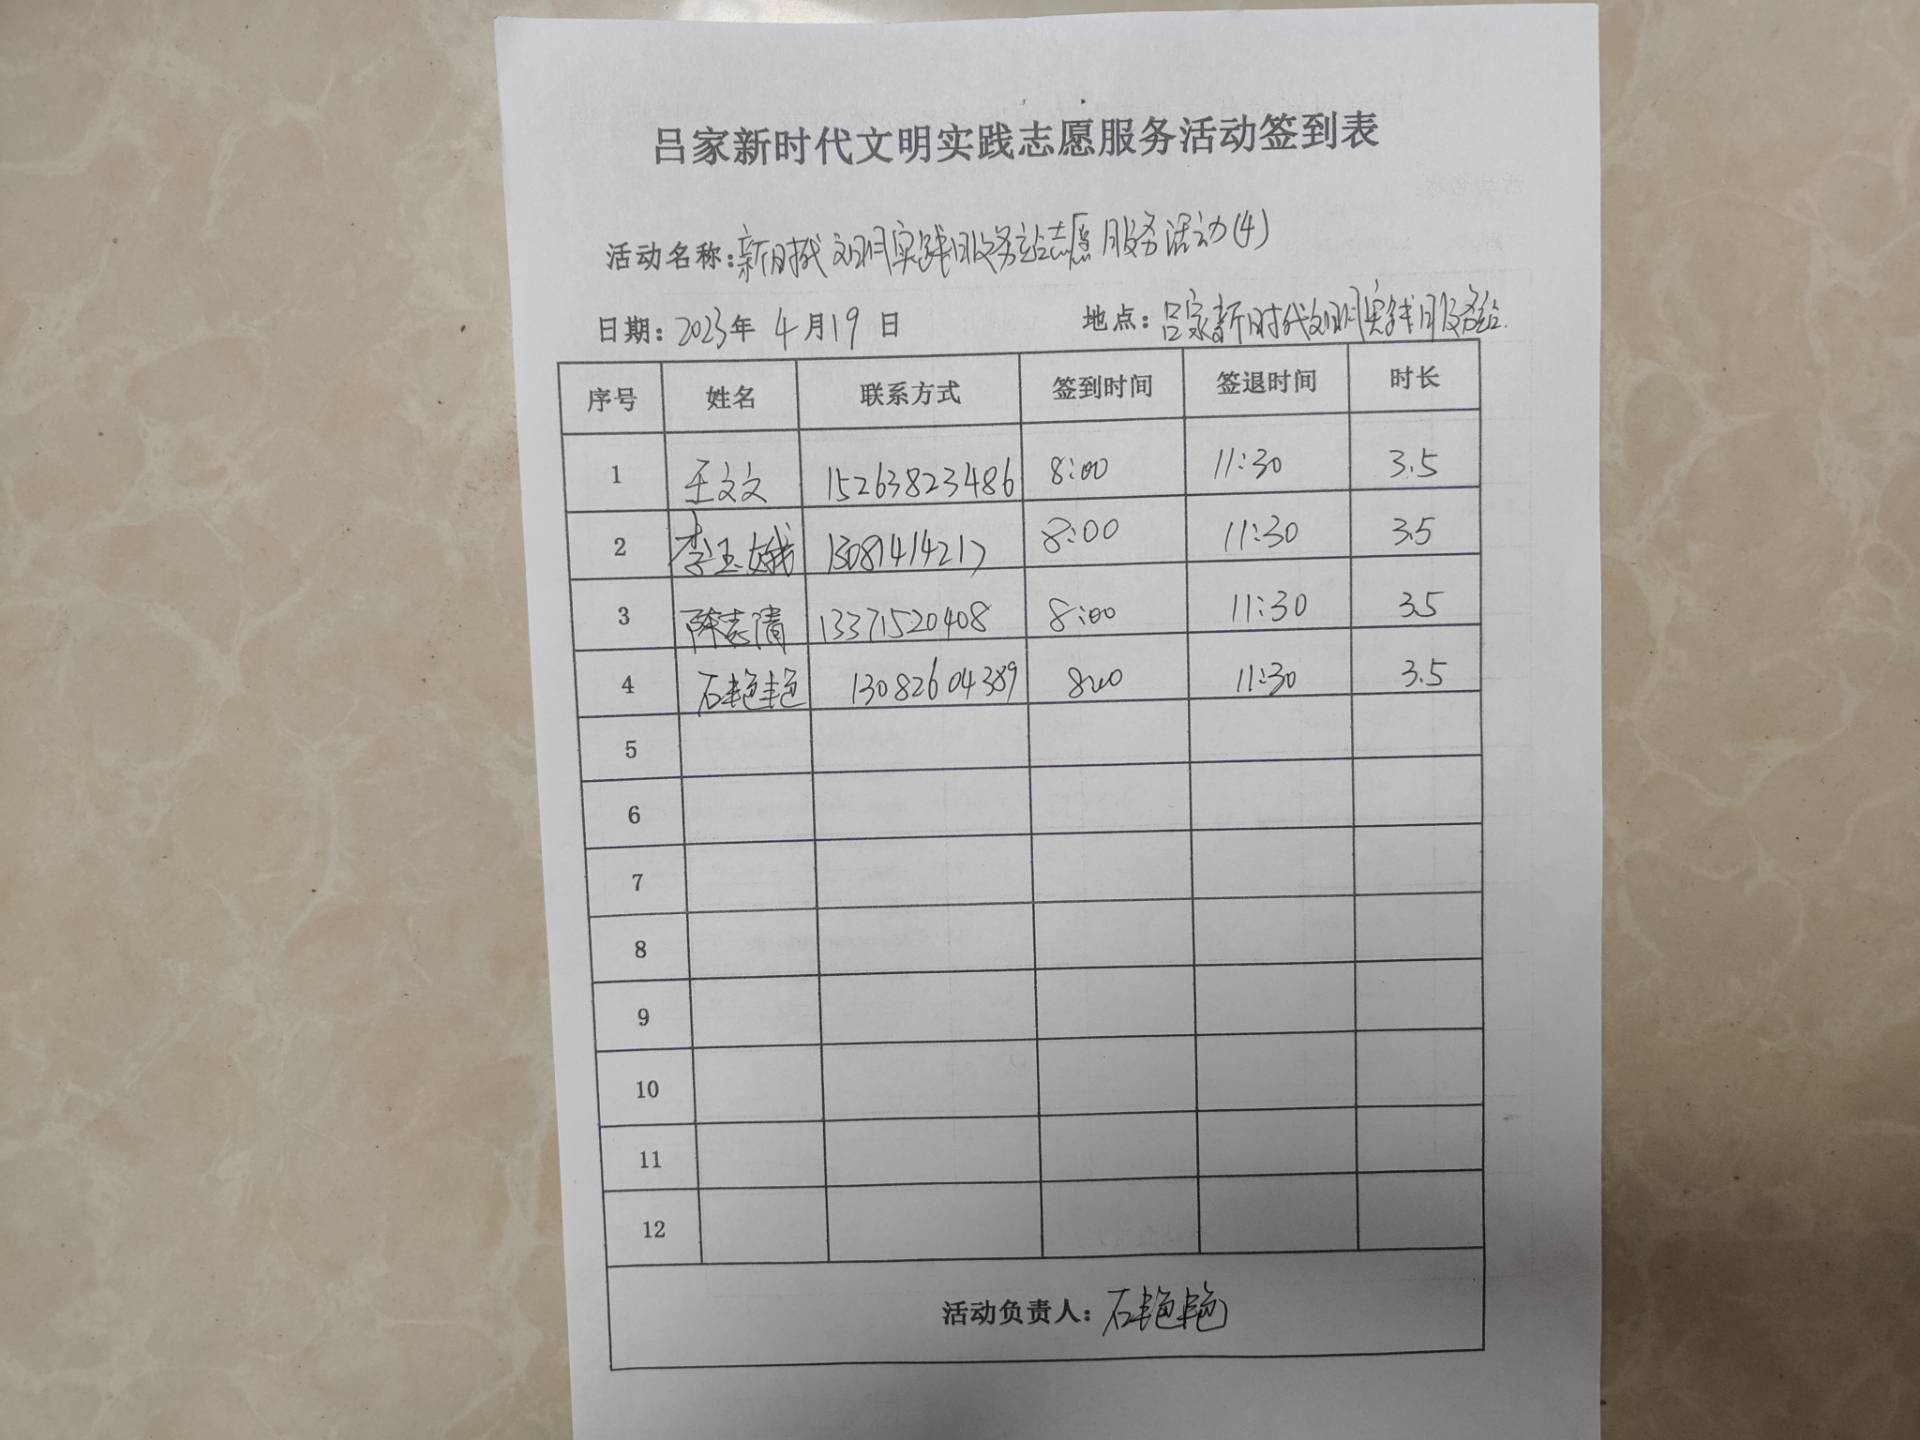 吕家新时代文明实践志愿服务活动签到表
活动名称:新时代文明实践服务站志愿服务活动(4)
日期:2023年 4月19日 地点:吕家新时代文明实践服务站.
序号 姓名 联系方式 签到时间 签退时间 时长
1 王文文 15263823486 8:00 11:30 3.5
2 李玉娥 13081414217 8:00 11:30 3.5
3 陈志清 13371520408 8:00 11:30 3.5
4 石艳艳 13082604389 8:00 11:30 3.5
5
6
7
8
9
10
11
12
活动负责人:石艳艳